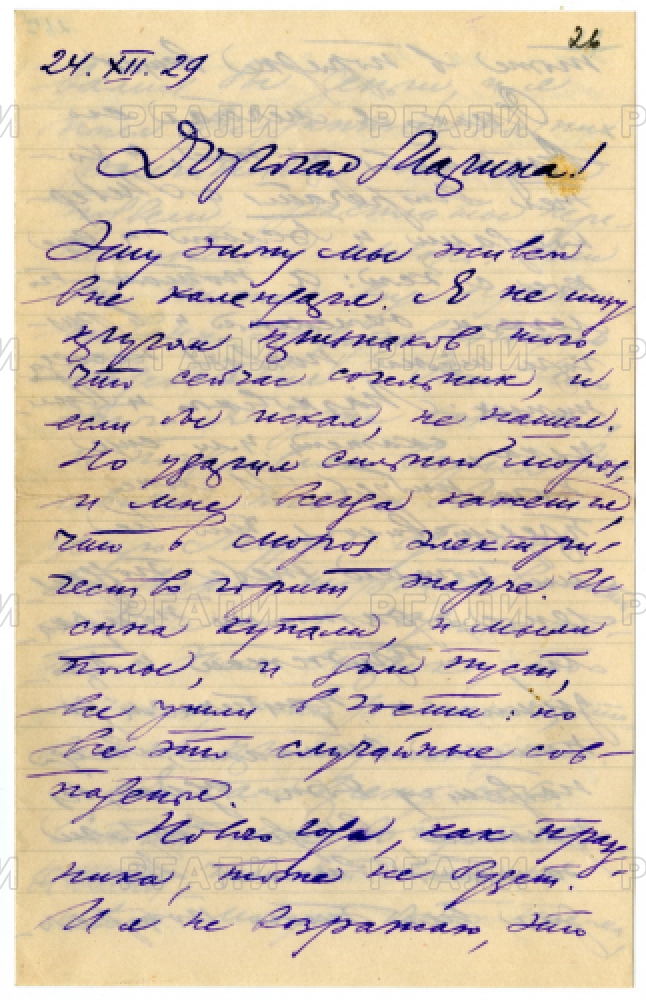 26
24.XII.29
Дорогая Марина!
Эту зиму мы живем
вне календаря. Я не ищу
других признаков того,
что сейчас сочельник, и
если бы искал, не нашел.
Но ударил сильный мороз,
и мне всегда кажется,
что в мороз электри-
чество горит жарче. И
сына купали, и мыли
полы, и дом пуст,
все ушли в гости: но
все это случайные сов-
паденья.
Нового года, как празд-
ника, тоже не будет.
И я не возражаю, это
РГАЛИ РГАЛИ
РГАЛИ РГАЛИ
РГАЛИ РГАЛИ
РГАЛИ РГАЛИ